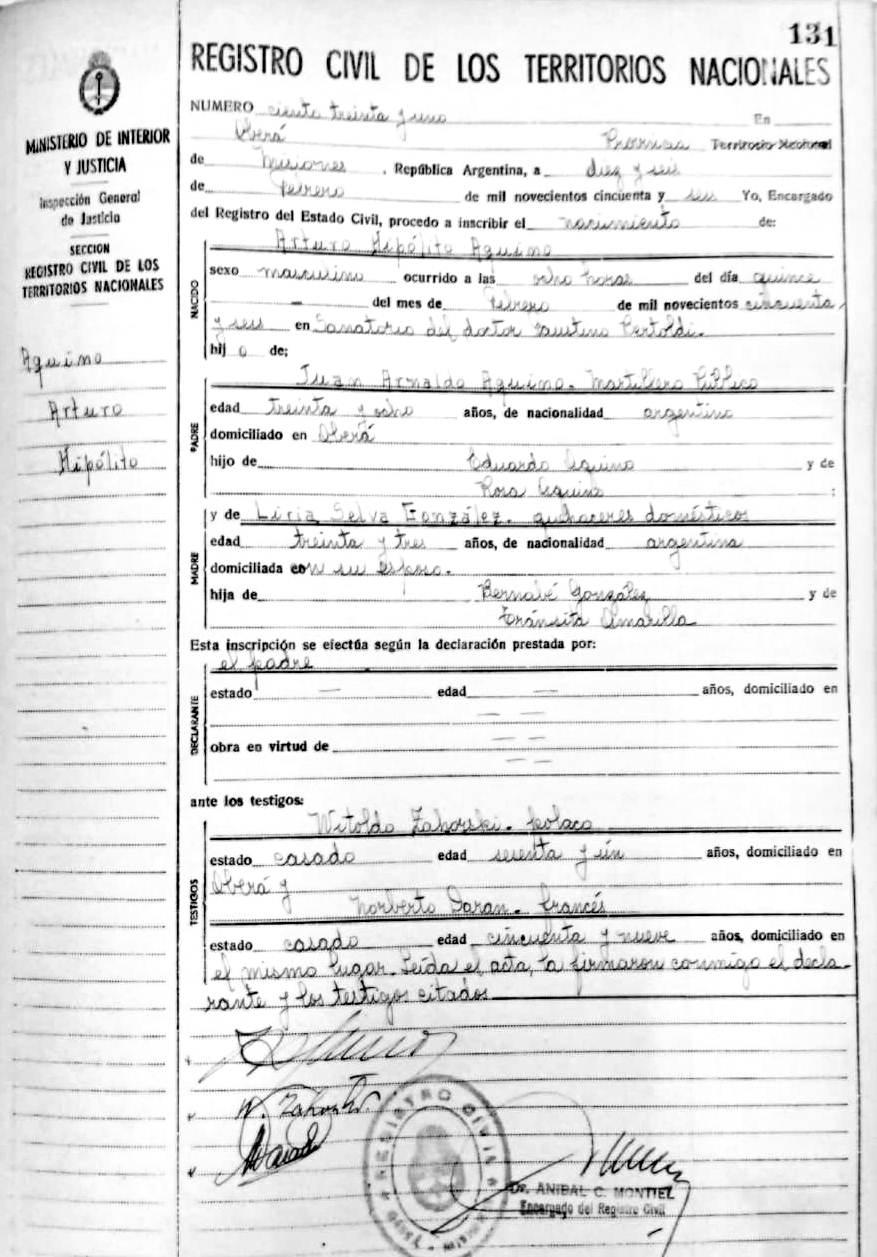 131
REGISTRO CIVIL DE LOS TERRITORIOS NACIONALES
MINISTERIO DE INTERIOR
Y JUSTICIA
Inspección General
de Justicia
SECCION
REGISTRO CIVIL DE LOS
TERRITORIOS NACIONALES
Aquino
Arturo
Hipólito
NUMERO ciento treinta y uno En
Oberá Provincia Territorio Nacional
de Misiones, República Argentina, a diez y seis
de Febrero de mil novecientos cincuenta y seis Yo, Encargado
del Registro del Estado Civil, procedo a inscribir el nacimiento de:
NACIDO
Arturo Hipólito Aquino
sexo masculino ocurrido a las ocho horas del día quince
— del mes de Febrero de mil novecientos cincuenta
y seis en Sanatorio del doctor Faustino Pertoldi.
hijo de;
PADRE
Juan Arnaldo Aquino. Martillero Público
edad treinta y ocho años, de nacionalidad argentino
domiciliado en Oberá
hijo de Eduardo Aquino y de
Rosa Aquino ;
MADRE
y de Liria Selva González. quehaceres domésticos
edad treinta y tres años, de nacionalidad argentina
domiciliada con su esposo.
hija de Bernabé González y de
Tránsita Amarilla
Esta inscripción se efectúa según la declaración prestada por:
el padre
DECLARANTE
estado — edad — años, domiciliado en
— —
obra en virtud de — —
— —
ante los testigos:
TESTIGOS
Witoldo Zahorski. polaco
estado casado edad sesenta y ún años, domiciliado en
Oberá y
Norberto Daran. francés
estado casado edad cincuenta y nueve años, domiciliado en
el mismo lugar. Leída el acta, la firmaron conmigo el decla-
rante y los testigos citados
W. Zahorski.
REGISTRO CIVIL
Dr. ANIBAL C. MONTIEL
Encargado del Registro Civil